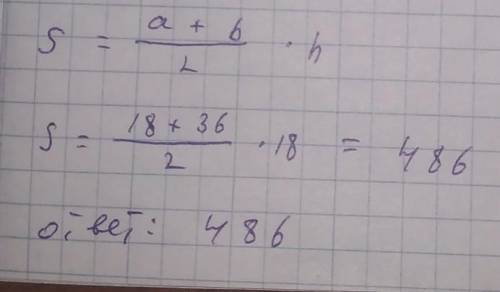 S = (a + b) / 2 · h
S = (18 + 36) / 2 · 18 = 486
ответ: 486